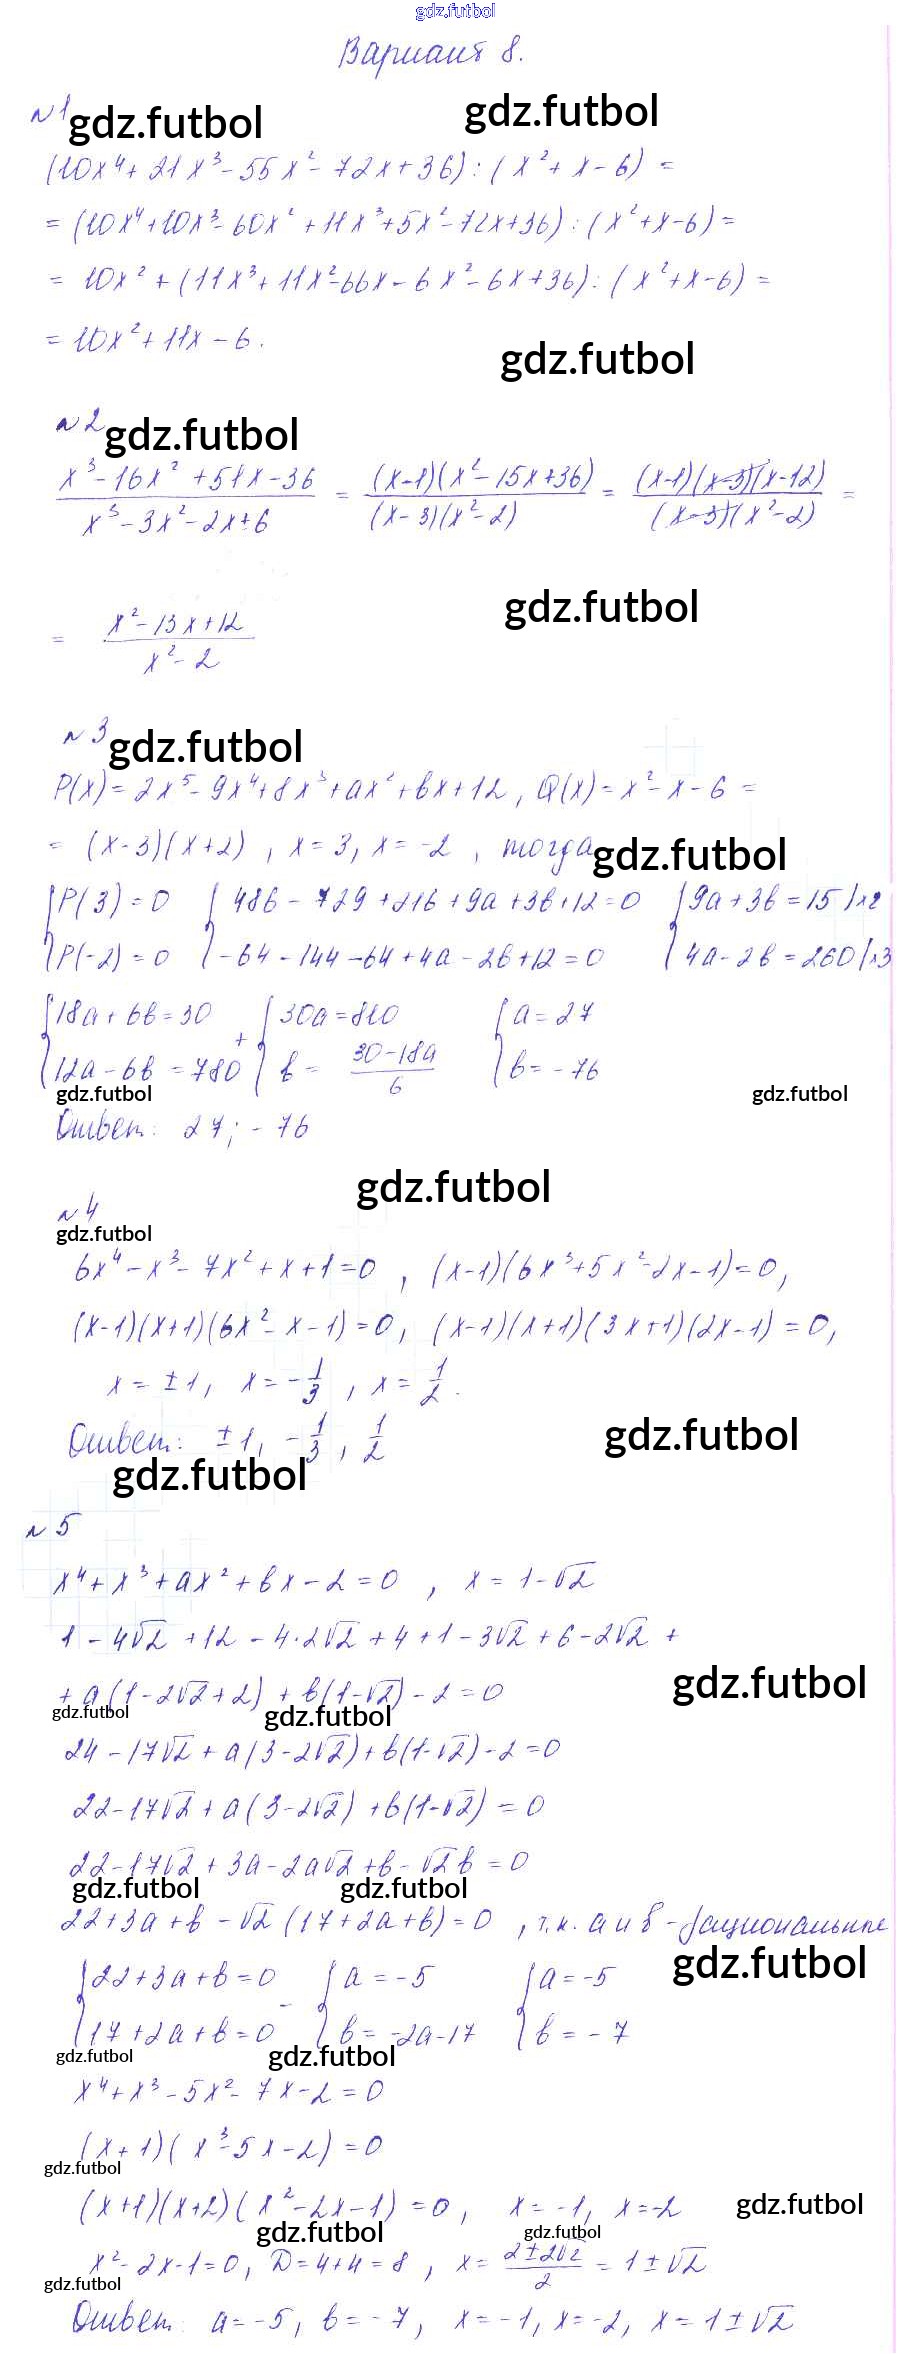 gdz.futbol
Вариант 8.
№1 gdz.futbol gdz.futbol
(10x⁴ + 21x³ - 55x² - 72x + 36) : (x² + x - 6) =
= (10x⁴ + 10x³ - 60x² + 11x³ + 5x² - 72x + 36) : (x² + x - 6) =
= 10x² + (11x³ + 11x² - 66x - 6x² - 6x + 36) : (x² + x - 6) =
= 10x² + 11x - 6.
gdz.futbol
№2 gdz.futbol
(x³ - 16x² + 51x - 36)/(x³ - 3x² - 2x + 6) = ((x-1)(x² - 15x + 36))/((x-3)(x² - 2)) = ((x-1)(x-3)(x-12))/((x-3)(x² - 2)) =
gdz.futbol
= (x² - 13x + 12)/(x² - 2)
№3 gdz.futbol
P(x) = 2x⁵ - 9x⁴ + 8x³ + ax² + bx + 12, Q(x) = x² - x - 6 =
= (x-3)(x+2), x = 3, x = -2, тогда gdz.futbol
{P(3) = 0 {486 - 729 + 216 + 9a + 3b + 12 = 0 {9a + 3b = 15 |×2
{P(-2) = 0 {-64 - 144 - 64 + 4a - 2b + 12 = 0 {4a - 2b = 260 |×3
{18a + 6b = 30 + {30a = 810 {a = 27
{12a - 6b = 780 {b = (30 - 18a)/6 {b = -76
gdz.futbol gdz.futbol
Ответ: 27; -76
gdz.futbol
№4
gdz.futbol
6x⁴ - x³ - 7x² + x + 1 = 0, (x-1)(6x³ + 5x² - 2x - 1) = 0,
(x-1)(x+1)(6x² - x - 1) = 0, (x-1)(x+1)(3x+1)(2x-1) = 0,
x = ±1, x = -1/3, x = 1/2.
Ответ: ±1, -1/3, 1/2
gdz.futbol
gdz.futbol
№5
x⁴ + x³ + ax² + bx - 2 = 0, x = 1 - √2
1 - 4√2 + 12 - 4·2√2 + 4 + 1 - 3√2 + 6 - 2√2 +
+ a(1 - 2√2 + 2) + b(1 - √2) - 2 = 0
gdz.futbol
gdz.futbol gdz.futbol
24 - 17√2 + a(3 - 2√2) + b(1 - √2) - 2 = 0
22 - 17√2 + a(3 - 2√2) + b(1 - √2) = 0
22 - 17√2 + 3a - 2a√2 + b - √2b = 0
gdz.futbol gdz.futbol
22 + 3a + b - √2(17 + 2a + b) = 0, т.к. a и b - рациональные
gdz.futbol
{22 + 3a + b = 0 - {a = -5 {a = -5
{17 + 2a + b = 0 {b = -2a - 17 {b = -7
gdz.futbol gdz.futbol
x⁴ + x³ - 5x² - 7x - 2 = 0
(x+1)(x³ - 5x - 2) = 0
gdz.futbol
(x+1)(x+2)(x² - 2x - 1) = 0, x = -1, x = -2 gdz.futbol
gdz.futbol gdz.futbol
x² - 2x - 1 = 0, D = 4 + 4 = 8, x = (2 ± 2√2)/2 = 1 ± √2
gdz.futbol
Ответ: a = -5, b = -7, x = -1, x = -2, x = 1 ± √2